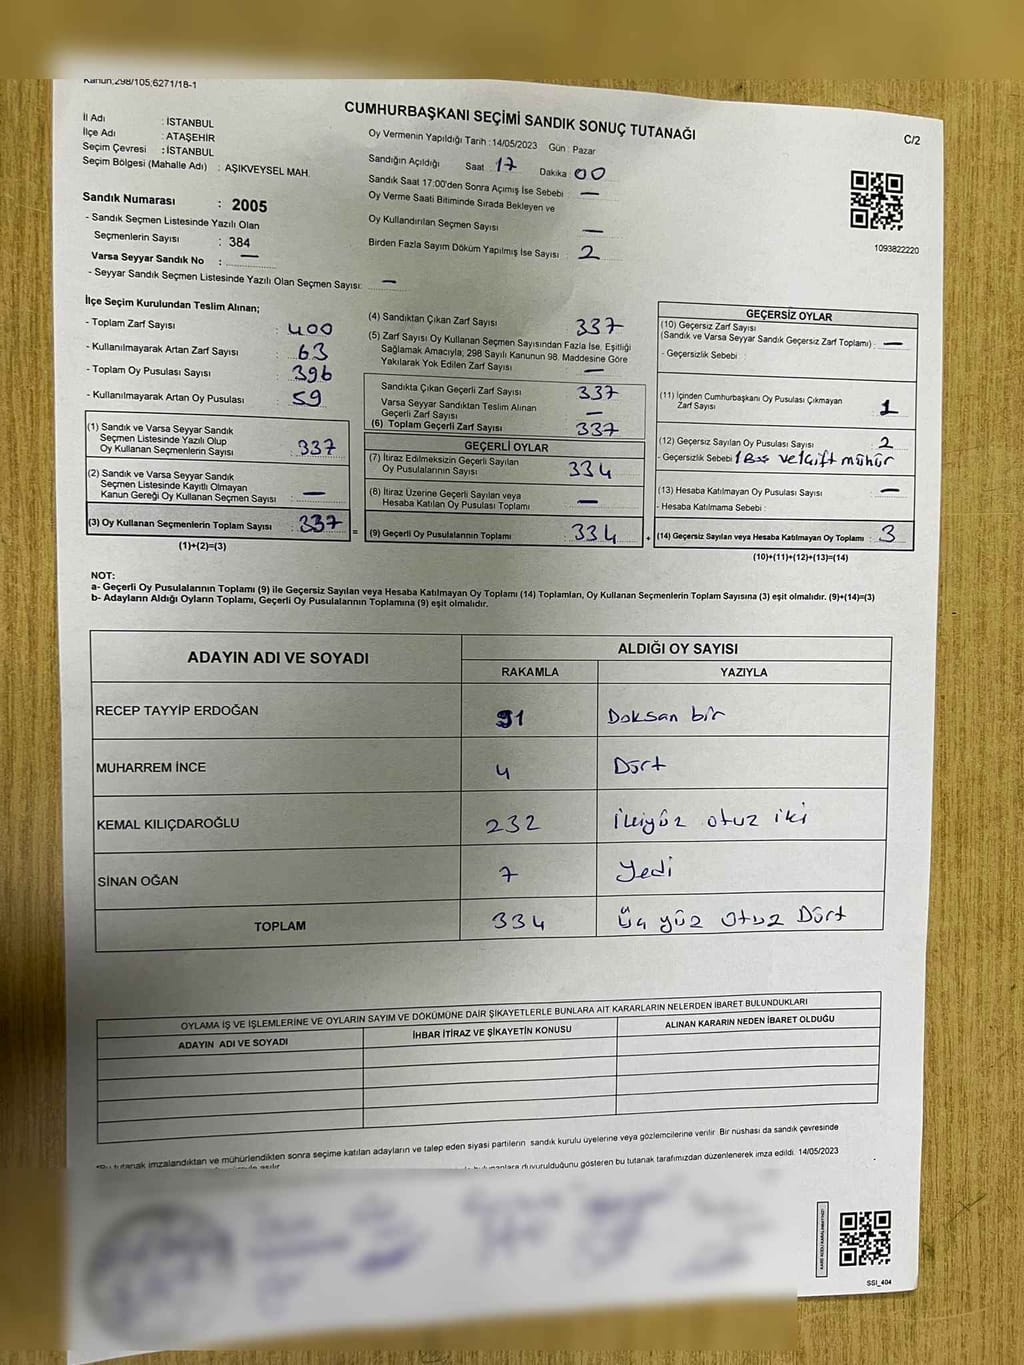 Kanun;298/105;6271/18-1
CUMHURBAŞKANI SEÇİMİ SANDIK SONUÇ TUTANAĞI
C/2
İl Adı : İSTANBUL
İlçe Adı : ATAŞEHİR
Seçim Çevresi : İSTANBUL
Seçim Bölgesi (Mahalle Adı) : AŞIKVEYSEL MAH.
Sandık Numarası : 2005
- Sandık Seçmen Listesinde Yazılı Olan
Seçmenlerin Sayısı : 384
Varsa Seyyar Sandık No : —
- Seyyar Sandık Seçmen Listesinde Yazılı Olan Seçmen Sayısı: —
Oy Vermenin Yapıldığı Tarih : 14/05/2023 Gün : Pazar
Sandığın Açıldığı Saat 17 Dakika : 00
Sandık Saat 17:00'den Sonra Açımış İse Sebebi : —
Oy Verme Saati Bitiminde Sırada Bekleyen ve
Oy Kullandırılan Seçmen Sayısı —
Birden Fazla Sayım Döküm Yapılmış İse Sayısı : 2
1093822220
İlçe Seçim Kurulundan Teslim Alınan;
- Toplam Zarf Sayısı : 400
- Kullanılmayarak Artan Zarf Sayısı : 63
- Toplam Oy Pusulası Sayısı : 396
- Kullanılmayarak Artan Oy Pusulası : 59
(1) Sandık ve Varsa Seyyar Sandık
Seçmen Listesinde Yazılı Olup
Oy Kullanan Seçmenlerin Sayısı : 337
(2) Sandık ve Varsa Seyyar Sandık
Seçmen Listesinde Kayıtlı Olmayan
Kanun Gereği Oy Kullanan Seçmen Sayısı : —
(3) Oy Kullanan Seçmenlerin Toplam Sayısı : 337 =
(1)+(2)=(3)
(4) Sandıktan Çıkan Zarf Sayısı 337
(5) Zarf Sayısı Oy Kullanan Seçmen Sayısından Fazla İse, Eşitliği
Sağlamak Amacıyla; 298 Sayılı Kanunun 98. Maddesine Göre
Yakılarak Yok Edilen Zarf Sayısı : —
Sandıkta Çıkan Geçerli Zarf Sayısı : 337
Varsa Seyyar Sandıktan Teslim Alınan
Geçerli Zarf Sayısı : —
(6) Toplam Geçerli Zarf Sayısı : 337
GEÇERLİ OYLAR
(7) İtiraz Edilmeksizin Geçerli Sayılan
Oy Pusulalarının Sayısı : 334
(8) İtiraz Üzerine Geçerli Sayılan veya
Hesaba Katılan Oy Pusulası Toplamı : —
(9) Geçerli Oy Pusulalarının Toplamı : 334 +
GEÇERSİZ OYLAR
(10) Geçersiz Zarf Sayısı
(Sandık ve Varsa Seyyar Sandık Geçersiz Zarf Toplamı) : —
- Geçersizlik Sebebi :
(11) İçinden Cumhurbaşkanı Oy Pusulası Çıkmayan
Zarf Sayısı : 1
(12) Geçersiz Sayılan Oy Pusulası Sayısı : 2
- Geçersizlik Sebebi 1 Boş ve 1 çift mühür
(13) Hesaba Katılmayan Oy Pusulası Sayısı : —
- Hesaba Katılmama Sebebi :
(14) Geçersiz Sayılan veya Hesaba Katılmayan Oy Toplamı : 3
(10)+(11)+(12)+(13)=(14)
NOT:
a- Geçerli Oy Pusulalarının Toplamı (9) ile Geçersiz Sayılan veya Hesaba Katılmayan Oy Toplamı (14) Toplamları, Oy Kullanan Seçmenlerin Toplam Sayısına (3) eşit olmalıdır. (9)+(14)=(3)
b- Adayların Aldığı Oyların Toplamı, Geçerli Oy Pusulalarının Toplamına (9) eşit olmalıdır.
ADAYIN ADI VE SOYADI
ALDIĞI OY SAYISI
RAKAMLA YAZIYLA
RECEP TAYYİP ERDOĞAN 91 Doksan bir
MUHARREM İNCE 4 Dört
KEMAL KILIÇDAROĞLU 232 İkiyüz otuz iki
SİNAN OĞAN 7 Yedi
TOPLAM 334 Üç yüz otuz Dört
OYLAMA İŞ VE İŞLEMLERİNE VE OYLARIN SAYIM VE DÖKÜMÜNE DAİR ŞİKAYETLERLE BUNLARA AİT KARARLARIN NELERDEN İBARET BULUNDUKLARI
ADAYIN ADI VE SOYADI İHBAR İTİRAZ VE ŞİKAYETİN KONUSU ALINAN KARARIN NEDEN İBARET OLDUĞU
*Bu tutanak imzalandıktan ve mühürlendikten sonra seçime katılan adayların ve talep eden siyasi partilerin sandık kurulu üyelerine veya gözlemcilerine verilir. Bir nüshası da sandık çevresinde
asılır. duyurulduğunu gösteren bu tutanak tarafımızdan düzenlenerek imza edildi. 14/05/2023
SSI_404